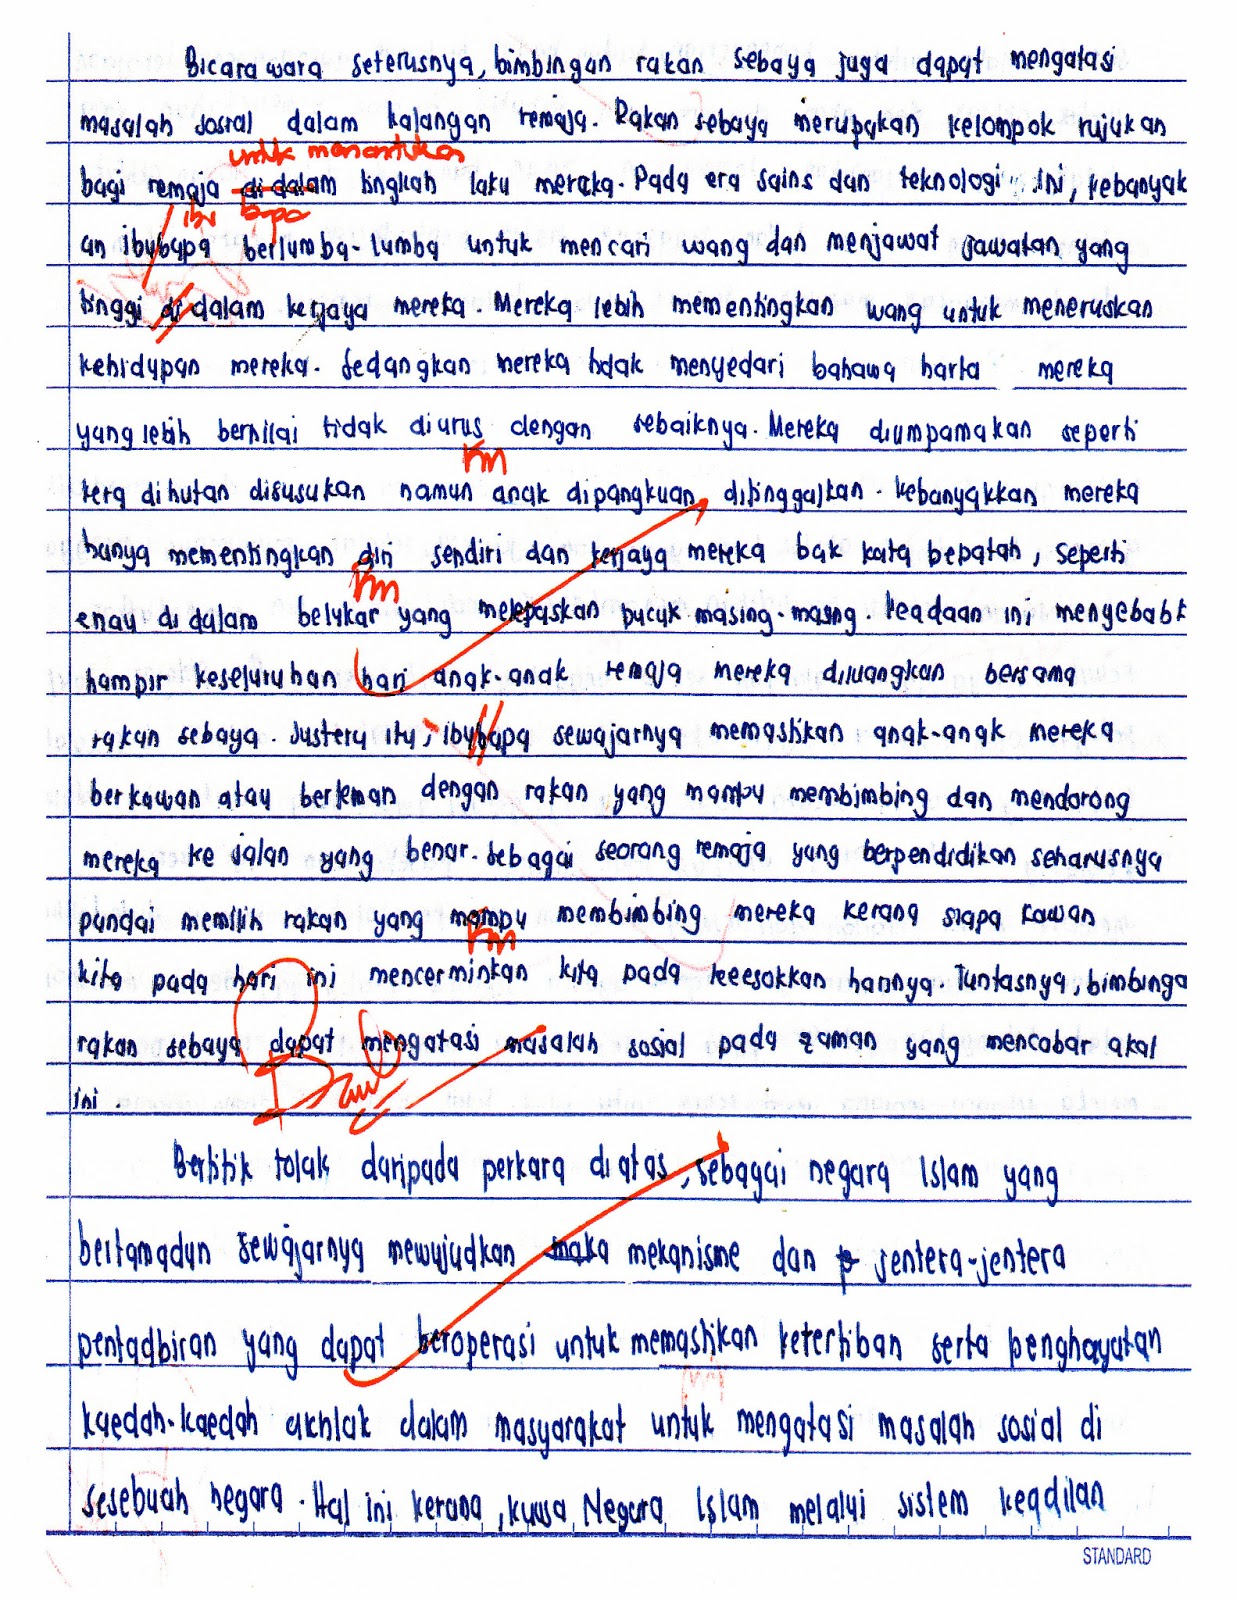 Bicara wara seterusnya, bimbingan rakan sebaya juga dapat mengatasi
masalah sosial dalam kalangan remaja. Rakan sebaya merupakan kelompok rujukan
untuk menentukan
bagi remaja di dalam tingkah laku mereka. Pada era sains dan teknologi ini, kebanyak
ibu bapa
an ibubapa berlumba-lumba untuk mencari wang dan menjawat jawatan yang
tinggi di dalam kerjaya mereka. Mereka lebih mementingkan wang untuk meneruskan
kehidupan mereka. Sedangkan mereka tidak menyedari bahawa harta mereka
yang lebih bernilai tidak diurus dengan sebaiknya. Mereka diumpamakan seperti
km
kera dihutan disusukan namun anak dipangkuan ditinggalkan. Kebanyakkan mereka
hanya mementingkan diri sendiri dan kerjaya mereka bak kata bepatah, seperti
km
enau di dalam belukar yang melepaskan pucuk masing-masing. Keadaan ini menyebabk
hampir keseluruhan hari anak-anak remaja mereka diluangkan bersama
rakan sebaya. Justeru itu, ibubapa sewajarnya memastikan anak-anak mereka
berkawan atau berteman dengan rakan yang mampu membimbing dan mendorong
mereka ke jalan yang benar. Sebagai seorang remaja yang berpendidikan seharusnya
pandai memilih rakan yang mampu membimbing mereka kerana siapa kawan
km
kita pada hari ini mencerminkan kita pada keesokkan harinnya. Tuntasnya, bimbinga
rakan sebaya dapat mengatasi masalah sosial pada zaman yang mencabar akal
ini.
Bertitik tolak daripada perkara diatas, sebagai negara Islam yang
bertamadun sewajarnya mewujudkan maka mekanisme dan p jentera-jentera
pentadbiran yang dapat beroperasi untuk memastikan ketertiban serta penghayatan
kaedah-kaedah akhlak dalam masyarakat untuk mengatasi masalah sosial di
sesebuah negara. Hal ini kerana, kuasa Negara Islam melalui sistem keadilan
STANDARD